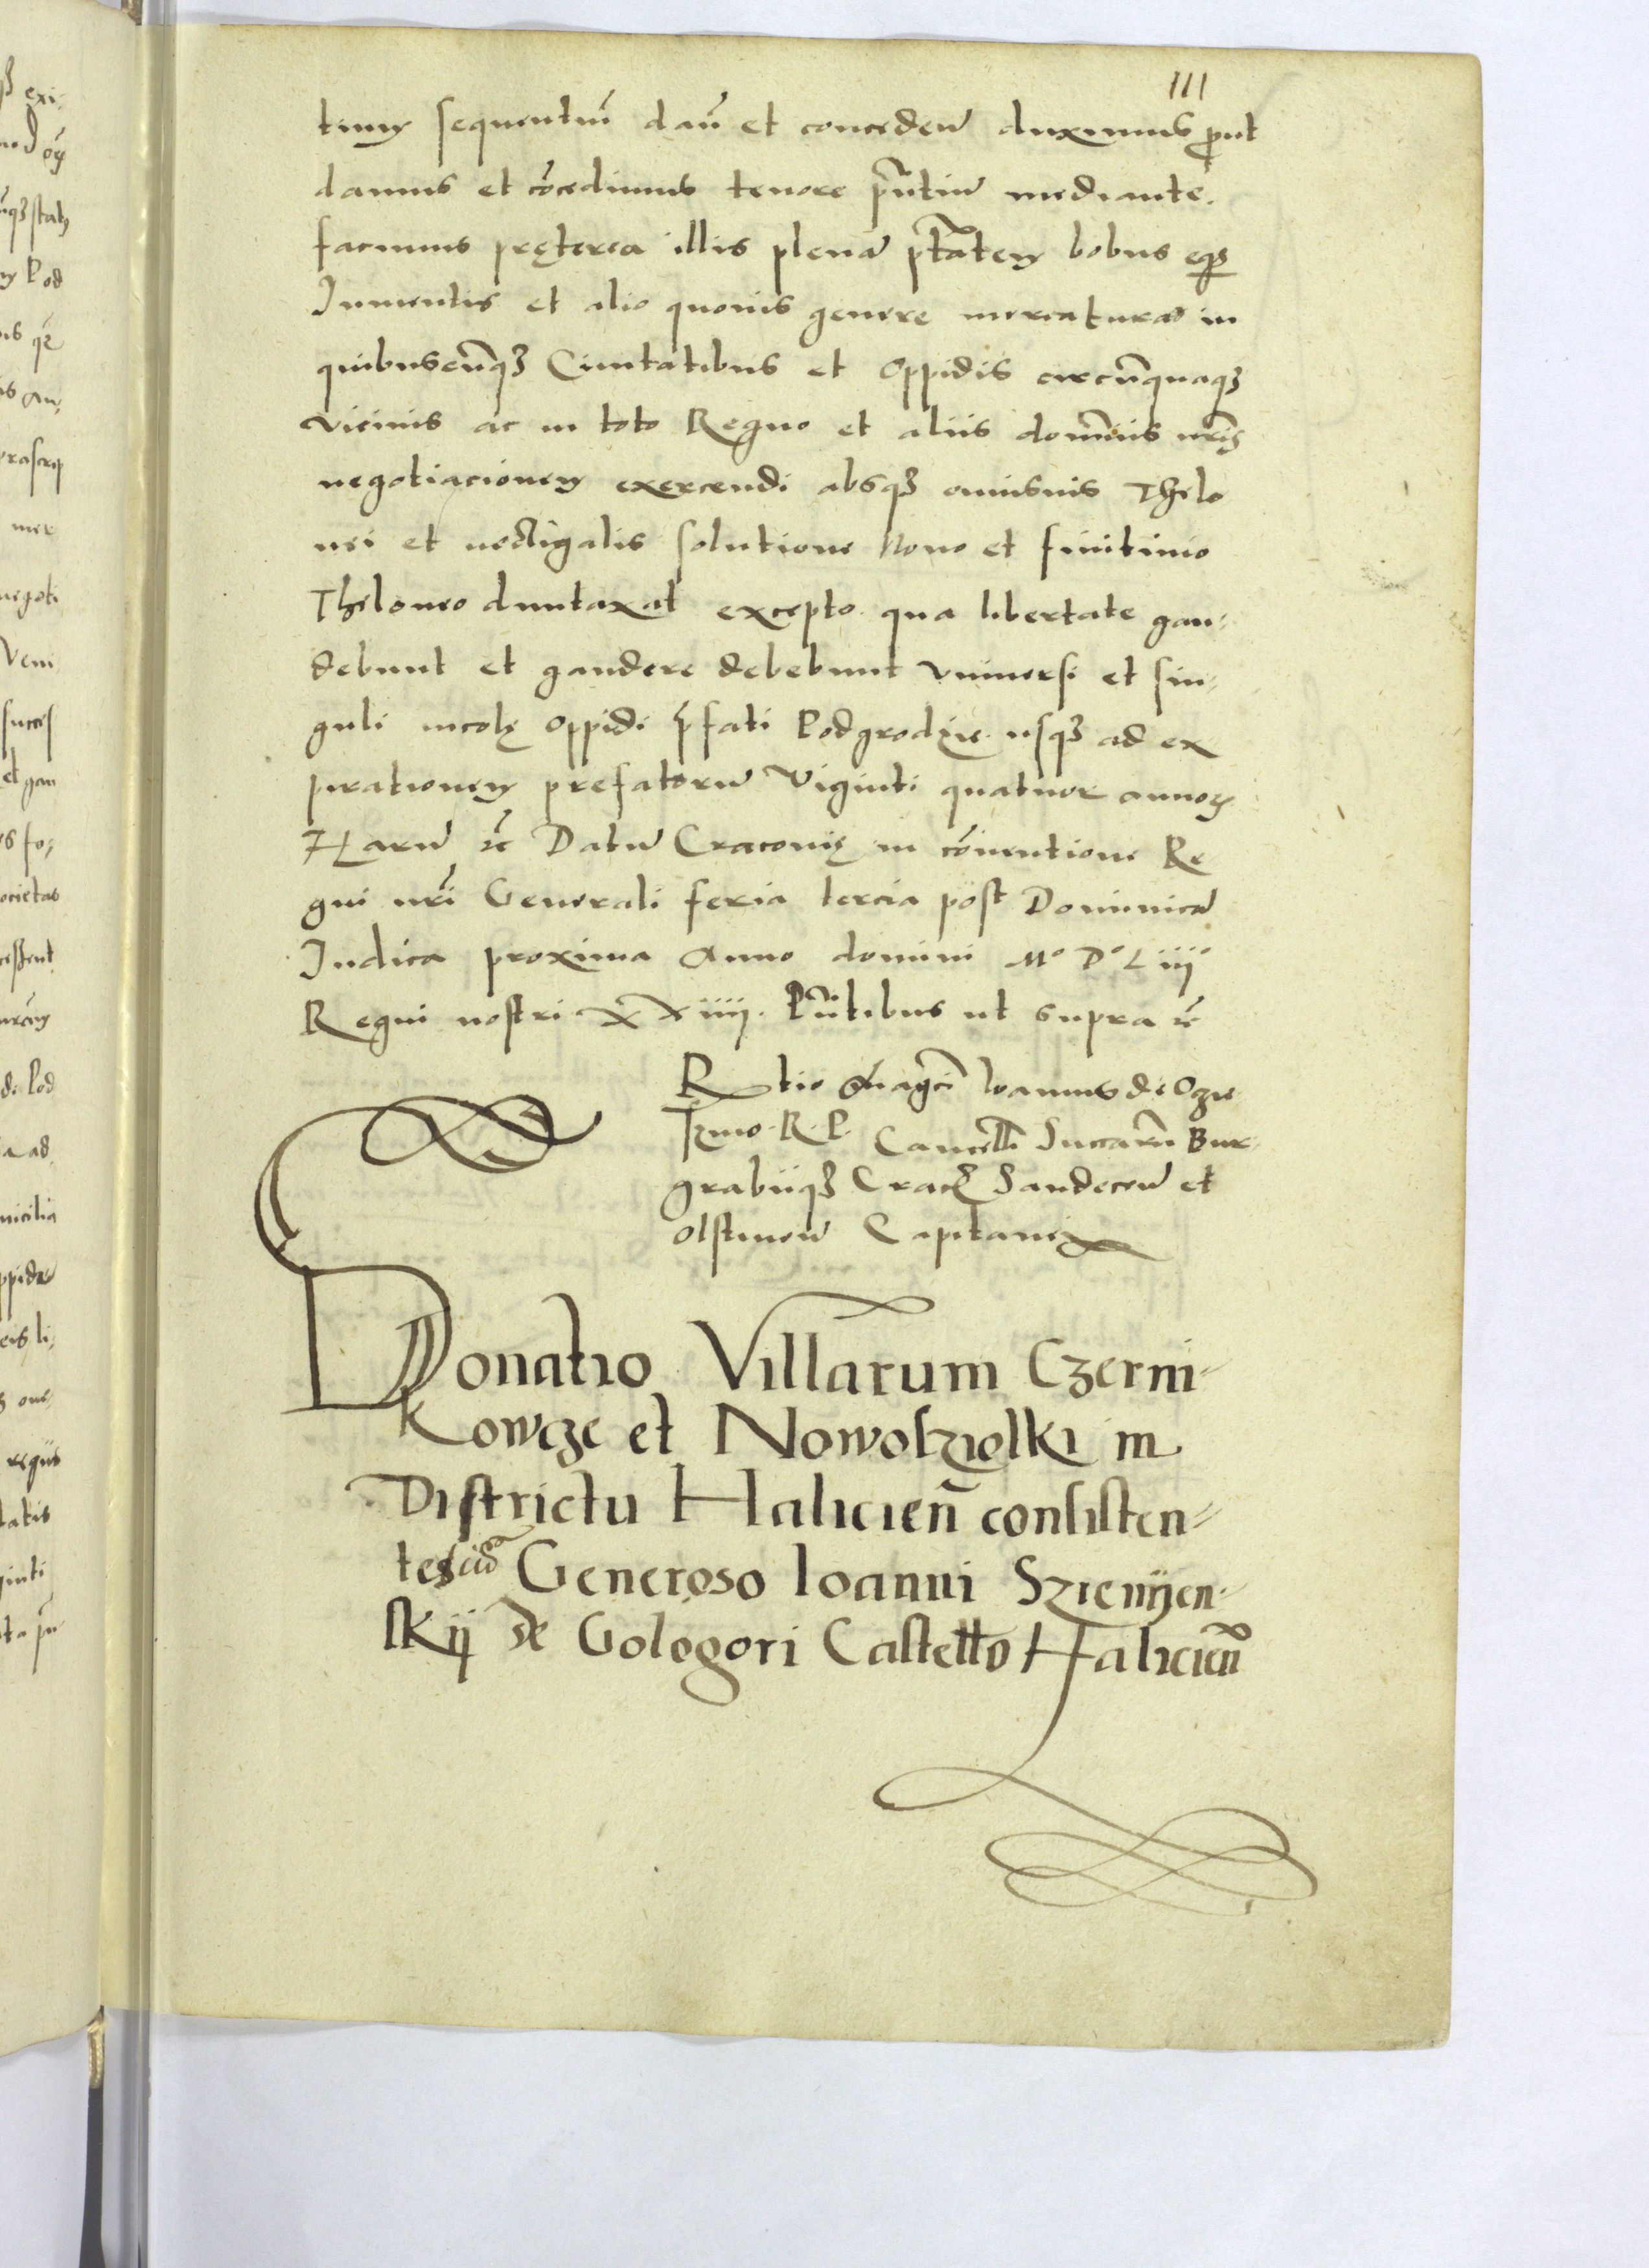 111
tum sequentiũ dañ et concedeñ duximus ꝓut
damus et cõcedimus tenore p̃ntiũ mediante.
facimus pręterea illis plenã ptãtem bobus eqs
Iumentis et alio quouis genere mercaturas in
quibuscũqꝫ Ciuitatibus et Oppidis circũquaqꝫ
vicinis ac in toto Regno et aliis dominiis nrĩs
negotiacionem exercendi absqꝫ omisuis Thelo
nei et uectigalis solutione Nouo et finitimo
Theloneo duntaxat excepto. qua libertate gau-
debunt et gaudere debebunt vniuersi et sin-
guli incolę Oppidi p̃fati Podgrodzie. usqꝫ ad ex
pirationem prefatorũ Viginti quatuor annoꝝ
Harũ ꝛc̃ Datũ Cracouię in cõuentione Re
gni nrĩ Generali feria tercia post Dominicã
Iudica proxima Anno domini Mº Dº Liiijº
Regni nostri XXiiij. Pñtibus ut supra ꝛc̃
Rtio Magci Ioannis de Oczie
szino. R. P. Cancell̃ Succarũ Bur-
grabiiqꝫ Crac̃ Sandeceñ et
Olstineñ Capitanei
Donatio Villarum Czerni-
kowcze et Nowosziolki in
Districtu Halicieñ consisten-
tes Generoso Ioanni Szienijen-
skij de Gologori Castello Halicieñ